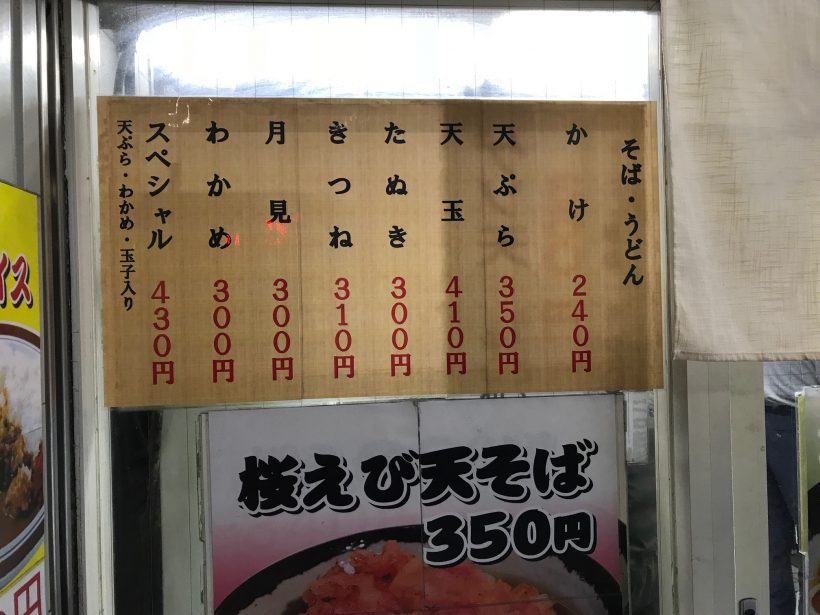 そば・うどん
かけ 240円
天ぷら 350円
天玉 410円
たぬき 300円
きつね 310円
月見 300円
わかめ 300円
スペシャル 430円
天ぷら・わかめ・玉子入り
桜えび天そば
350円
イス
円